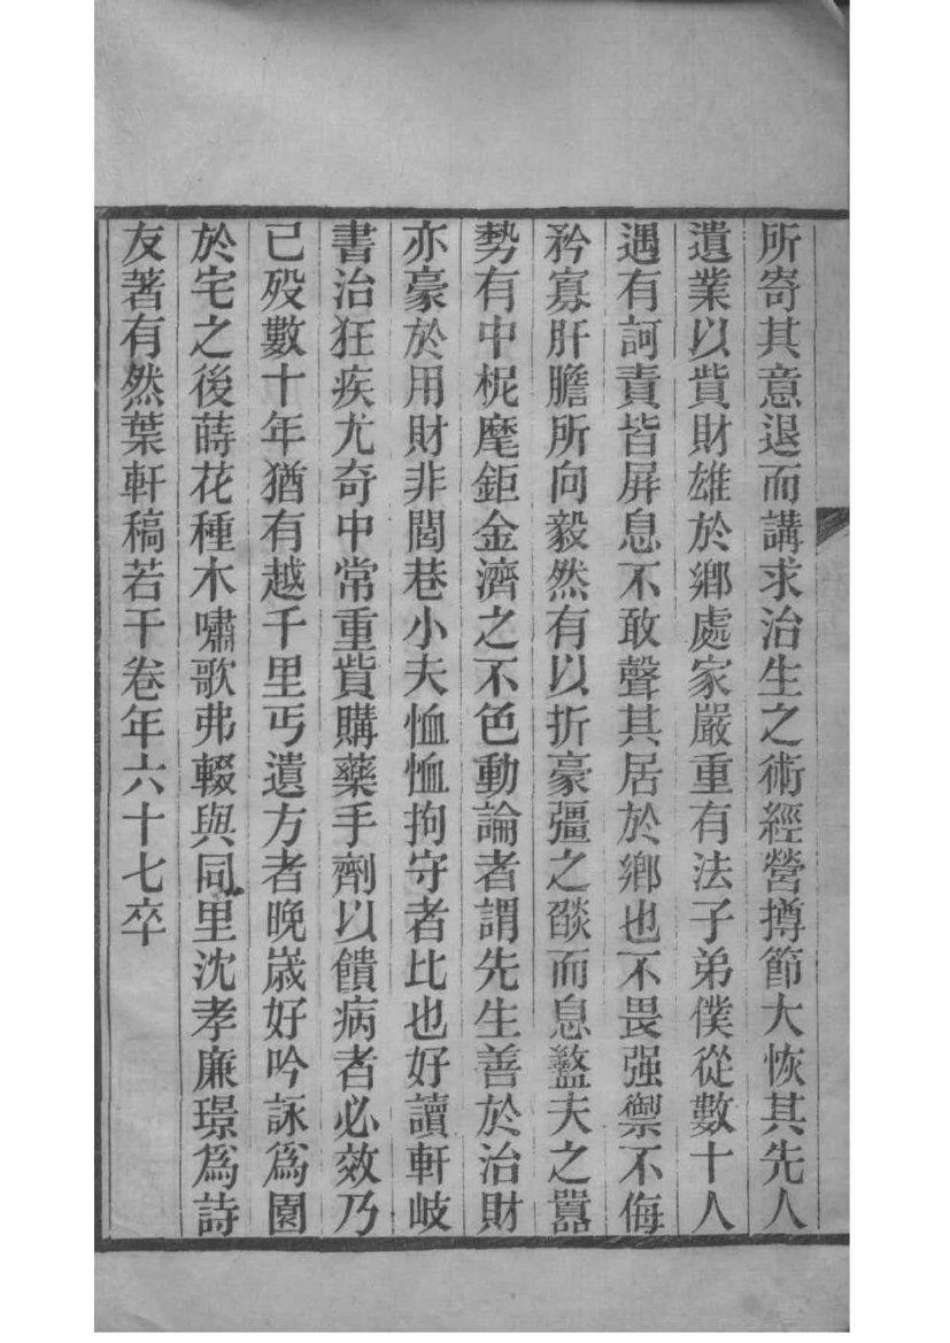 所寄其意退而講求治生之術經營撙節大恢其先人
遺業以貲財雄於鄉處家嚴重有法子弟僕從數十人
遇有訶責皆屏息不敢聲其居於鄉也不畏强禦不侮
矜寡肝膽所向毅然有以折豪彊之燄而息盭夫之囂
勢有中柅麾鉅金濟之不色動論者謂先生善於治財
亦豪於用財非閭巷小夫恤恤拘守者比也好讀軒岐
書治狂疾尤奇中常重貲購藥手劑以饋病者必效乃
已歿數十年猶有越千里丐遺方者晚歲好吟詠爲園
於宅之後蒔花種木嘯歌弗輟與同里沈孝廉璟爲詩
友著有然葉軒稿若干卷年六十七卒